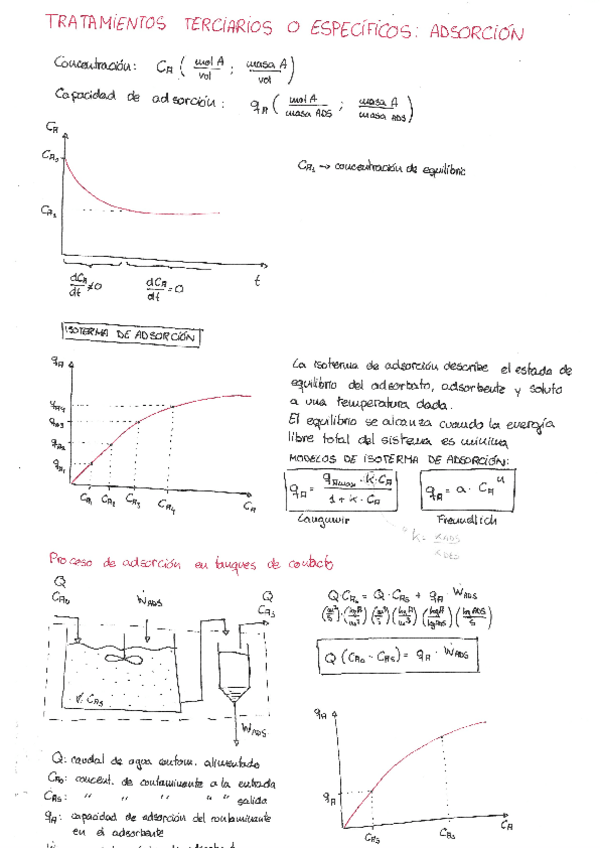 TRATAMIENTOS TERCIARIOS O ESPECÍFICOS: ADSORCIÓN
Concentración: CA ( mol A / vol ; masa A / vol )
Capacidad de adsorción: qA ( mol A / masa ADS ; masa A / masa ADS )
CA
CA0
CAs
CAs → concentración de equilibrio
dCA/dt ≠ 0
dCA/dt = 0
t
ISOTERMA DE ADSORCIÓN
qA
qA4
qA3
qA2
qA1
CA1 CA2 CA3 CA4 CA
La isoterma de adsorción describe el estado de
equilibrio del adsorbato, adsorbente y soluto
a una temperatura dada.
El equilibrio se alcanza cuando la energía
libre total del sistema es mínima
MODELOS DE ISOTERMA DE ADSORCIÓN:
qA = qAmax · K · CA / 1 + K · CA
qA = a · CA^n
Langmuir
Freundlich
K = KADS / KDES
Proceso de adsorción en tanques de contacto
Q
CA0
WADS
Q
CAs
V, CAs
WADS
Q CA0 = Q · CAs + qA · WADS
(m³/s) · (kg A/m³) (m³/s) (kg A/m³) (kg A/kg ADS) (kg ADS/s)
Q (CA0 - CAs) = qA · WADS
Q: caudal de agua contam. alimentado
CA0: concent. de contaminante a la entrada
CAs: " " " " " salida
qA: capacidad de adsorción del contaminante
en el adsorbente
qA
qA
CAs
CA0
CA